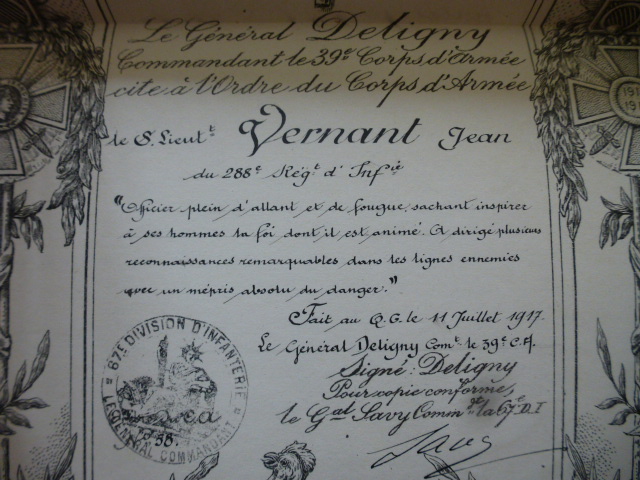 Le Général Deligny
Commandant le 39e Corps d'Armée
cite à l'Ordre du Corps d'Armée
le S. Lieutt Vernant Jean
du 288e Régt d'Infie
"Officier plein d'allant et de fougue, sachant inspirer
à ses hommes la foi dont il est animé. A dirigé plusieurs
reconnaissances remarquables dans les lignes ennemies
avec un mépris absolu du danger."
Fait au Q.G. le 11 Juillet 1917.
Le Général Deligny Comt le 39e C.A.
Signé: Deligny
Pour copie conforme,
le Gal Savy Commdt la 67e D.I
Savy
67E DIVISION D'INFANTERIE
LE GENERAL COMMANDANT